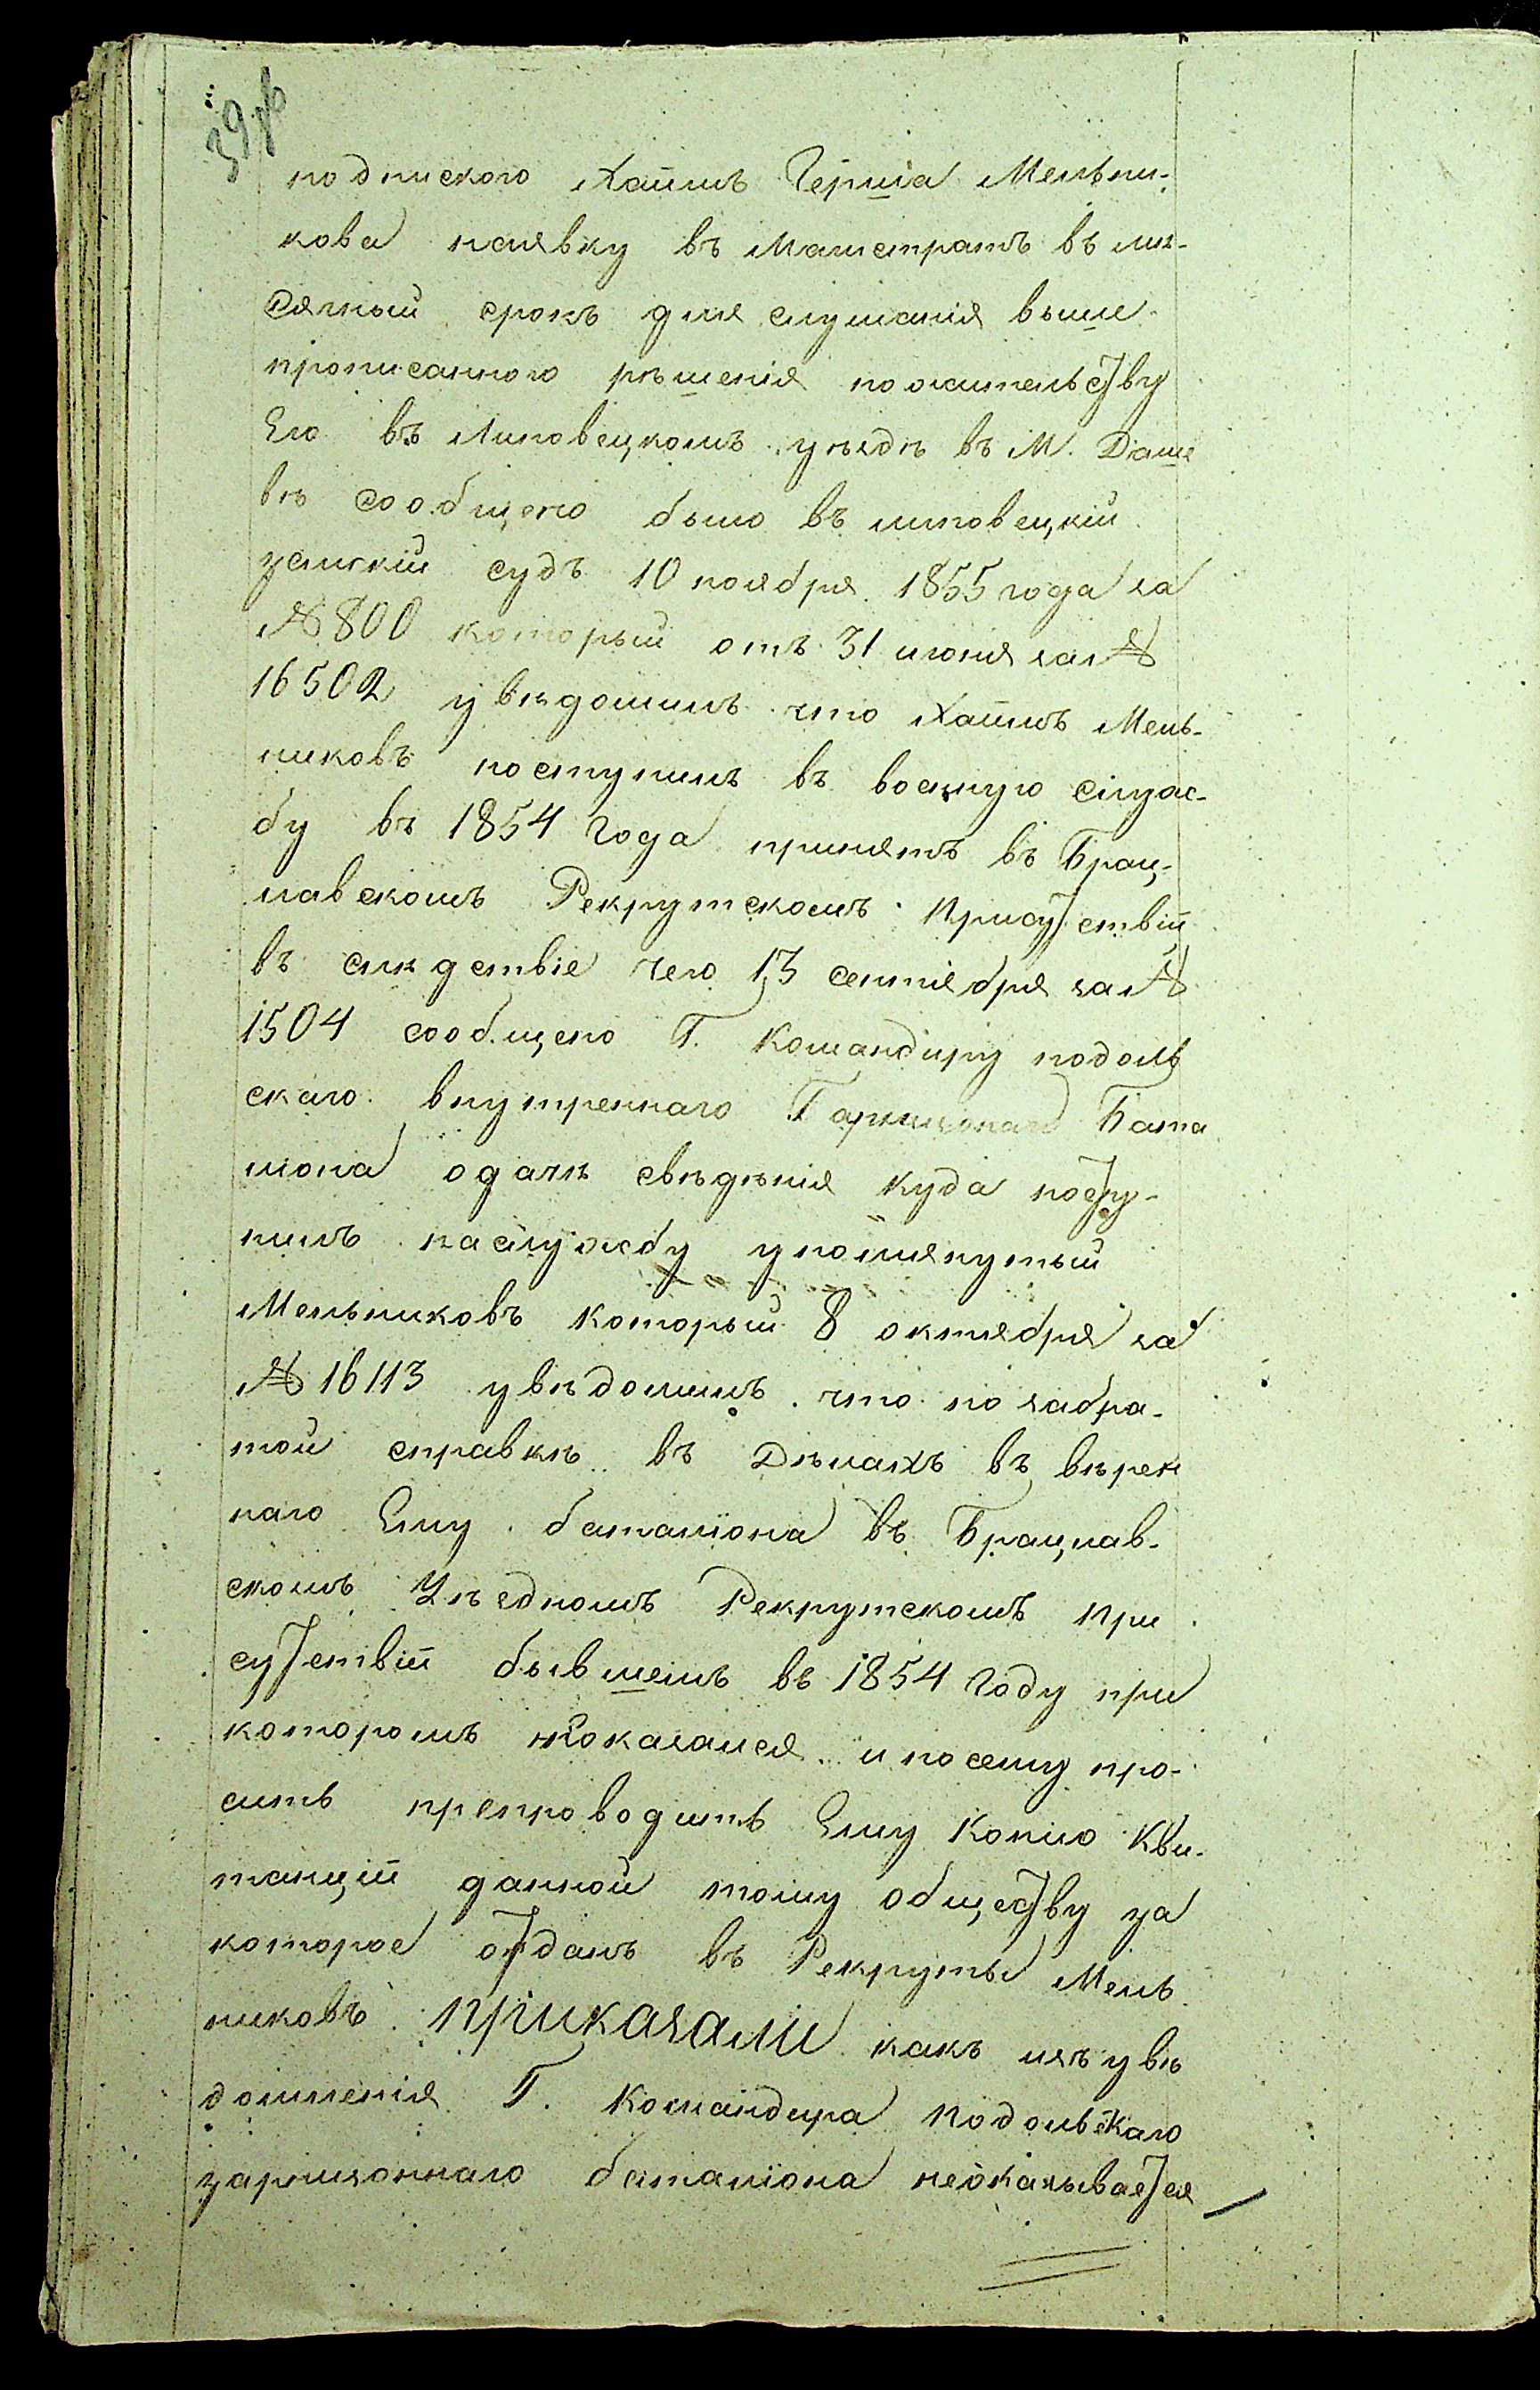 39 об
подпискою Хаимъ Герша Мельни-
кова наявку въ Магистратъ въ мѣ-
сячный срокъ для слушанія выше-
прописанного рѣшенія пожительству
Его въ Липовецкомъ уѣздѣ въ М. Даше
вѣ сообщено было въ липовецкій
земскій судъ 10 ноября 1855 года за
№ 800 который отъ 31 июня за №
16502 увѣдомилъ что Хаимъ Мель-
никовъ поступилъ въ военную служ-
бу въ 1854 года принятъ въ Брац-
лавскомъ Рекрутскомъ Присутствій
въ слѣдствіе чего 13 сентября за №
1504 сообщено Г. Командиру подоль
скаго внутреннаго Гарнизонаго Бата
ліона одачѣ свѣдѣнія куда посту-
пилъ наслужбу упомянутый
Мельниковъ который 8 октября за
№ 16113 увѣдомилъ что по забра-
той справкѣ въ Дѣлахъ въ вѣрен
наго Ему баталіона въ Брацлав-
скомъ Уѣздномъ Рекрутскомъ При
сутствій бывшемъ въ 1854 году при
которомъ неоказался и посему про-
ситъ препроводить Ему Копию Кви-
танцій данной тому обществу за
которое отданъ въ Рекруты Мель
никовъ. Приказали какъ изъ увѣ
домленія Г. Командира Подольскаго
гарнизоннаго баталіона неоказывается